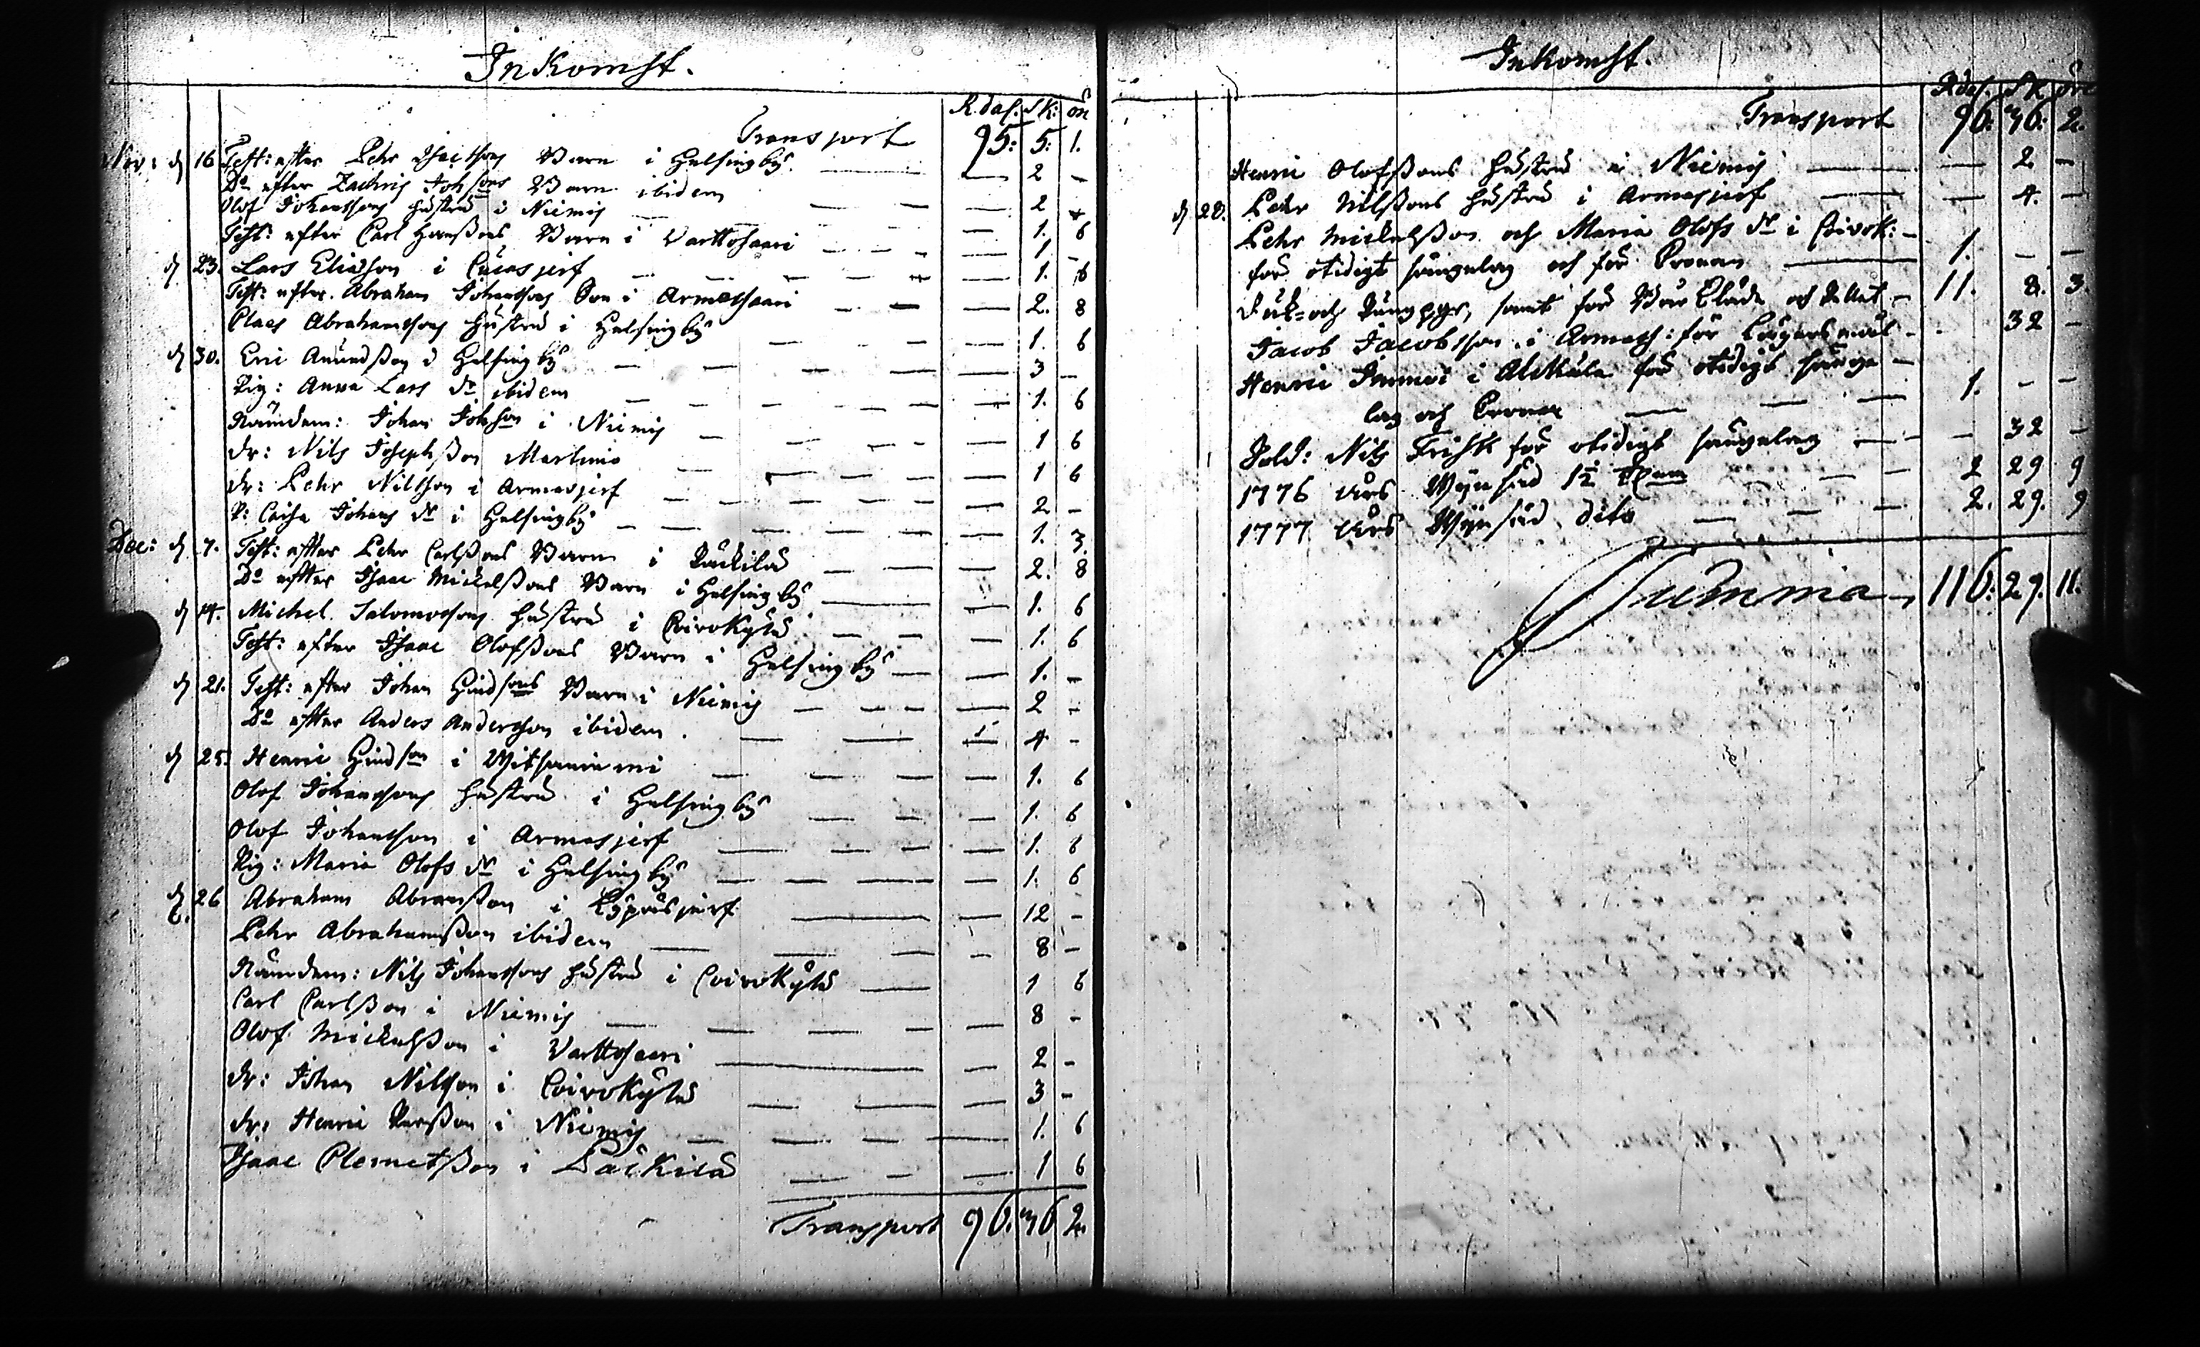 Inkomst.
R.dal. Sk: ör
Transport 95: 5: 1.
Nov: d 16 Test: efter Pehr Isacsons Barn i Helsingby. — 2 -
Do efter Zachris Johsons Barn ibidem — 2
Olof Johanssons hustru i Niemis — 1. 6
Test: efter Carl Hansons Barn i Varttosaari — 1 -
d 23. Lars Eliasson i Cuiasjerf — 1. 6
Test: efter Abraham Johanssons Son i Armassaari — 2. 8
Claes Abrahamssons hustru i Helsingby — 1. 6
d 30. Eric Amundsson i Helsingby — 3 -
Pig: Anna Lars dr ibidem — 1. 6
Nämdem: Johan Johson i Niemis — 1 6
dr: Nils Josephsson Martimo — 1 6
dr: Pehr Nilsson i Armasjerf — 2 -
P: Caisa Johans dr i Helsingby — 1. 3.
Dec: d 7. Test: efter Pehr Carlssons Barn i Päckilä — 2. 8
Do efter Isaac Mickelssons Barn i Helsingby — 1. 6
d 14. Michel Salomonsons hustru i Coivokylä — 1. 6
Test: efter Isaac Olofssons Barn i Helsingby — 1. -
d 21. Test: efter Johan Hindsons Barn i Niemis — 2 -
Do efter Anders Andersson ibidem — 4 -
d 25. Henric Hindson i Witsaniemi — 1. 6
Olof Johanssons hustru i Helsingby — 1. 6
Olof Johansson i Armasjerf — 1. 6
Pig: Maria Olofs dr i Helsingby — 1. 6
d 26 Abraham Abramsson i Löpusjerf — 12 -
Pehr Abrahamsson ibidem — 8 -
Nämdem: Nils Johanssons hustru i Coivokylä — 1 6
Carl Carlsson i Niemis — 8 -
Olof Mickelsson i Varttosaari — 2 -
dr: Johan Nilsson i Coivokylä — 3 -
dr: Henric Persson i Niemis — 1. 6
Isaac Clemetsson i Päckilä — 1 6
Transport 96. 46 2.
Inkomst.
Rdal. Sk öre
Transport 96: 46: 2.
Henric Olofssons hustru i Niemis — 2 -
d 28. Pehr Nilssons hustru i Armasjerf — 4. -
Pehr Mickelsson och Maria Olofs dr i Coivok: -
för otidigt sängelag och för Cronan — 1. - -
Håf- och Pungpgr, samt för Bår Cläde — 11. 8. 3.
Jacob Jacobsson i Armass: för Lägersmål — 32 -
Henric i Alkula för otidigt sänge-
lag och Cronan — 1. - -
Sold: Nils Frisk för otidigt sängelag — 32 -
1776 Års Wijnsäd 1½ — 2 29 9
1777 Års Wijnsäd dito — 2. 29. 9
Summa 116: 29. 11.